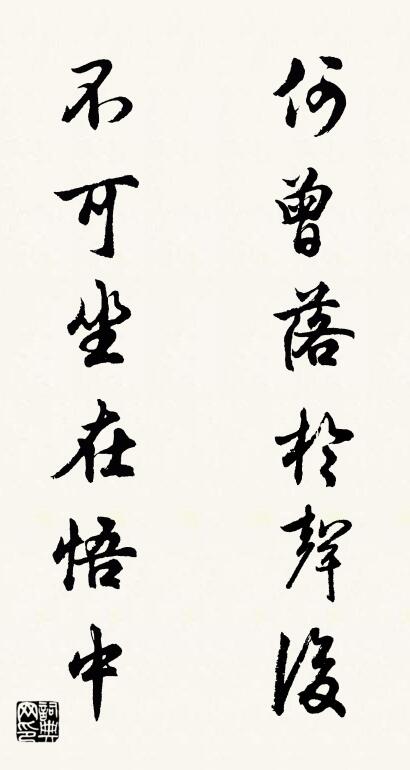 何曾落於聲後
不可坐在悟中
詞典網印